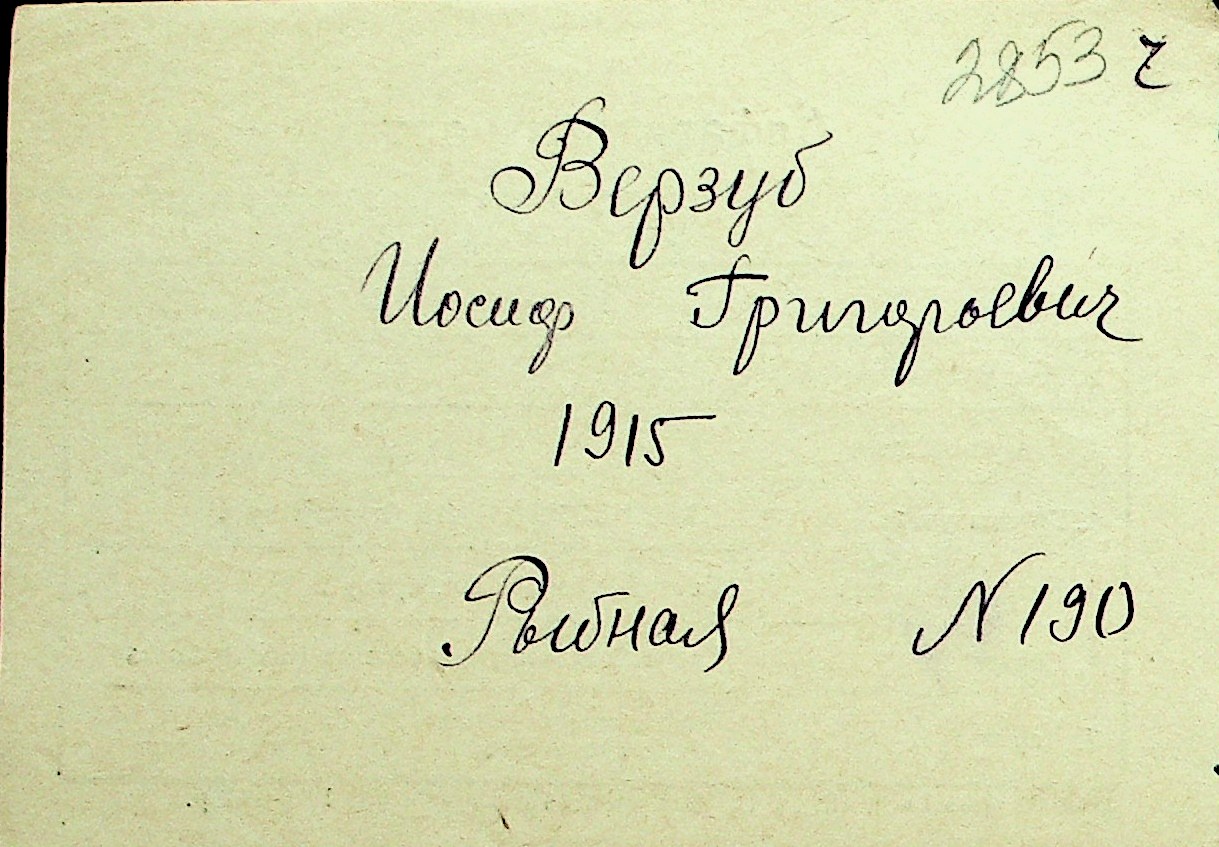 2853 ч
Верзуб
Иосиф Григорьевич
1915
Рыбная N 190